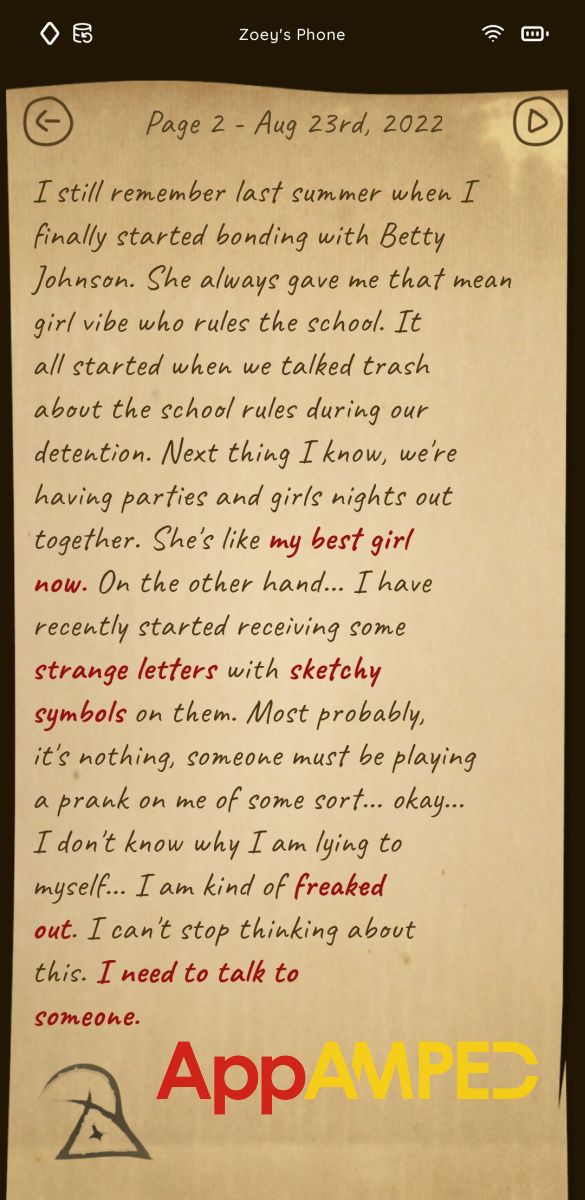 Zoey's Phone
Page 2 - Aug 23rd, 2022
I still remember last summer when I
finally started bonding with Betty
Johnson. She always gave me that mean
girl vibe who rules the school. It
all started when we talked trash
about the school rules during our
detention. Next thing I know, we're
having parties and girls nights out
together. She's like my best girl
now. On the other hand... I have
recently started receiving some
strange letters with sketchy
symbols on them. Most probably,
it's nothing, someone must be playing
a prank on me of some sort... okay...
I don't know why I am lying to
myself... I am kind of freaked
out. I can't stop thinking about
this. I need to talk to
someone.
AppAMPED